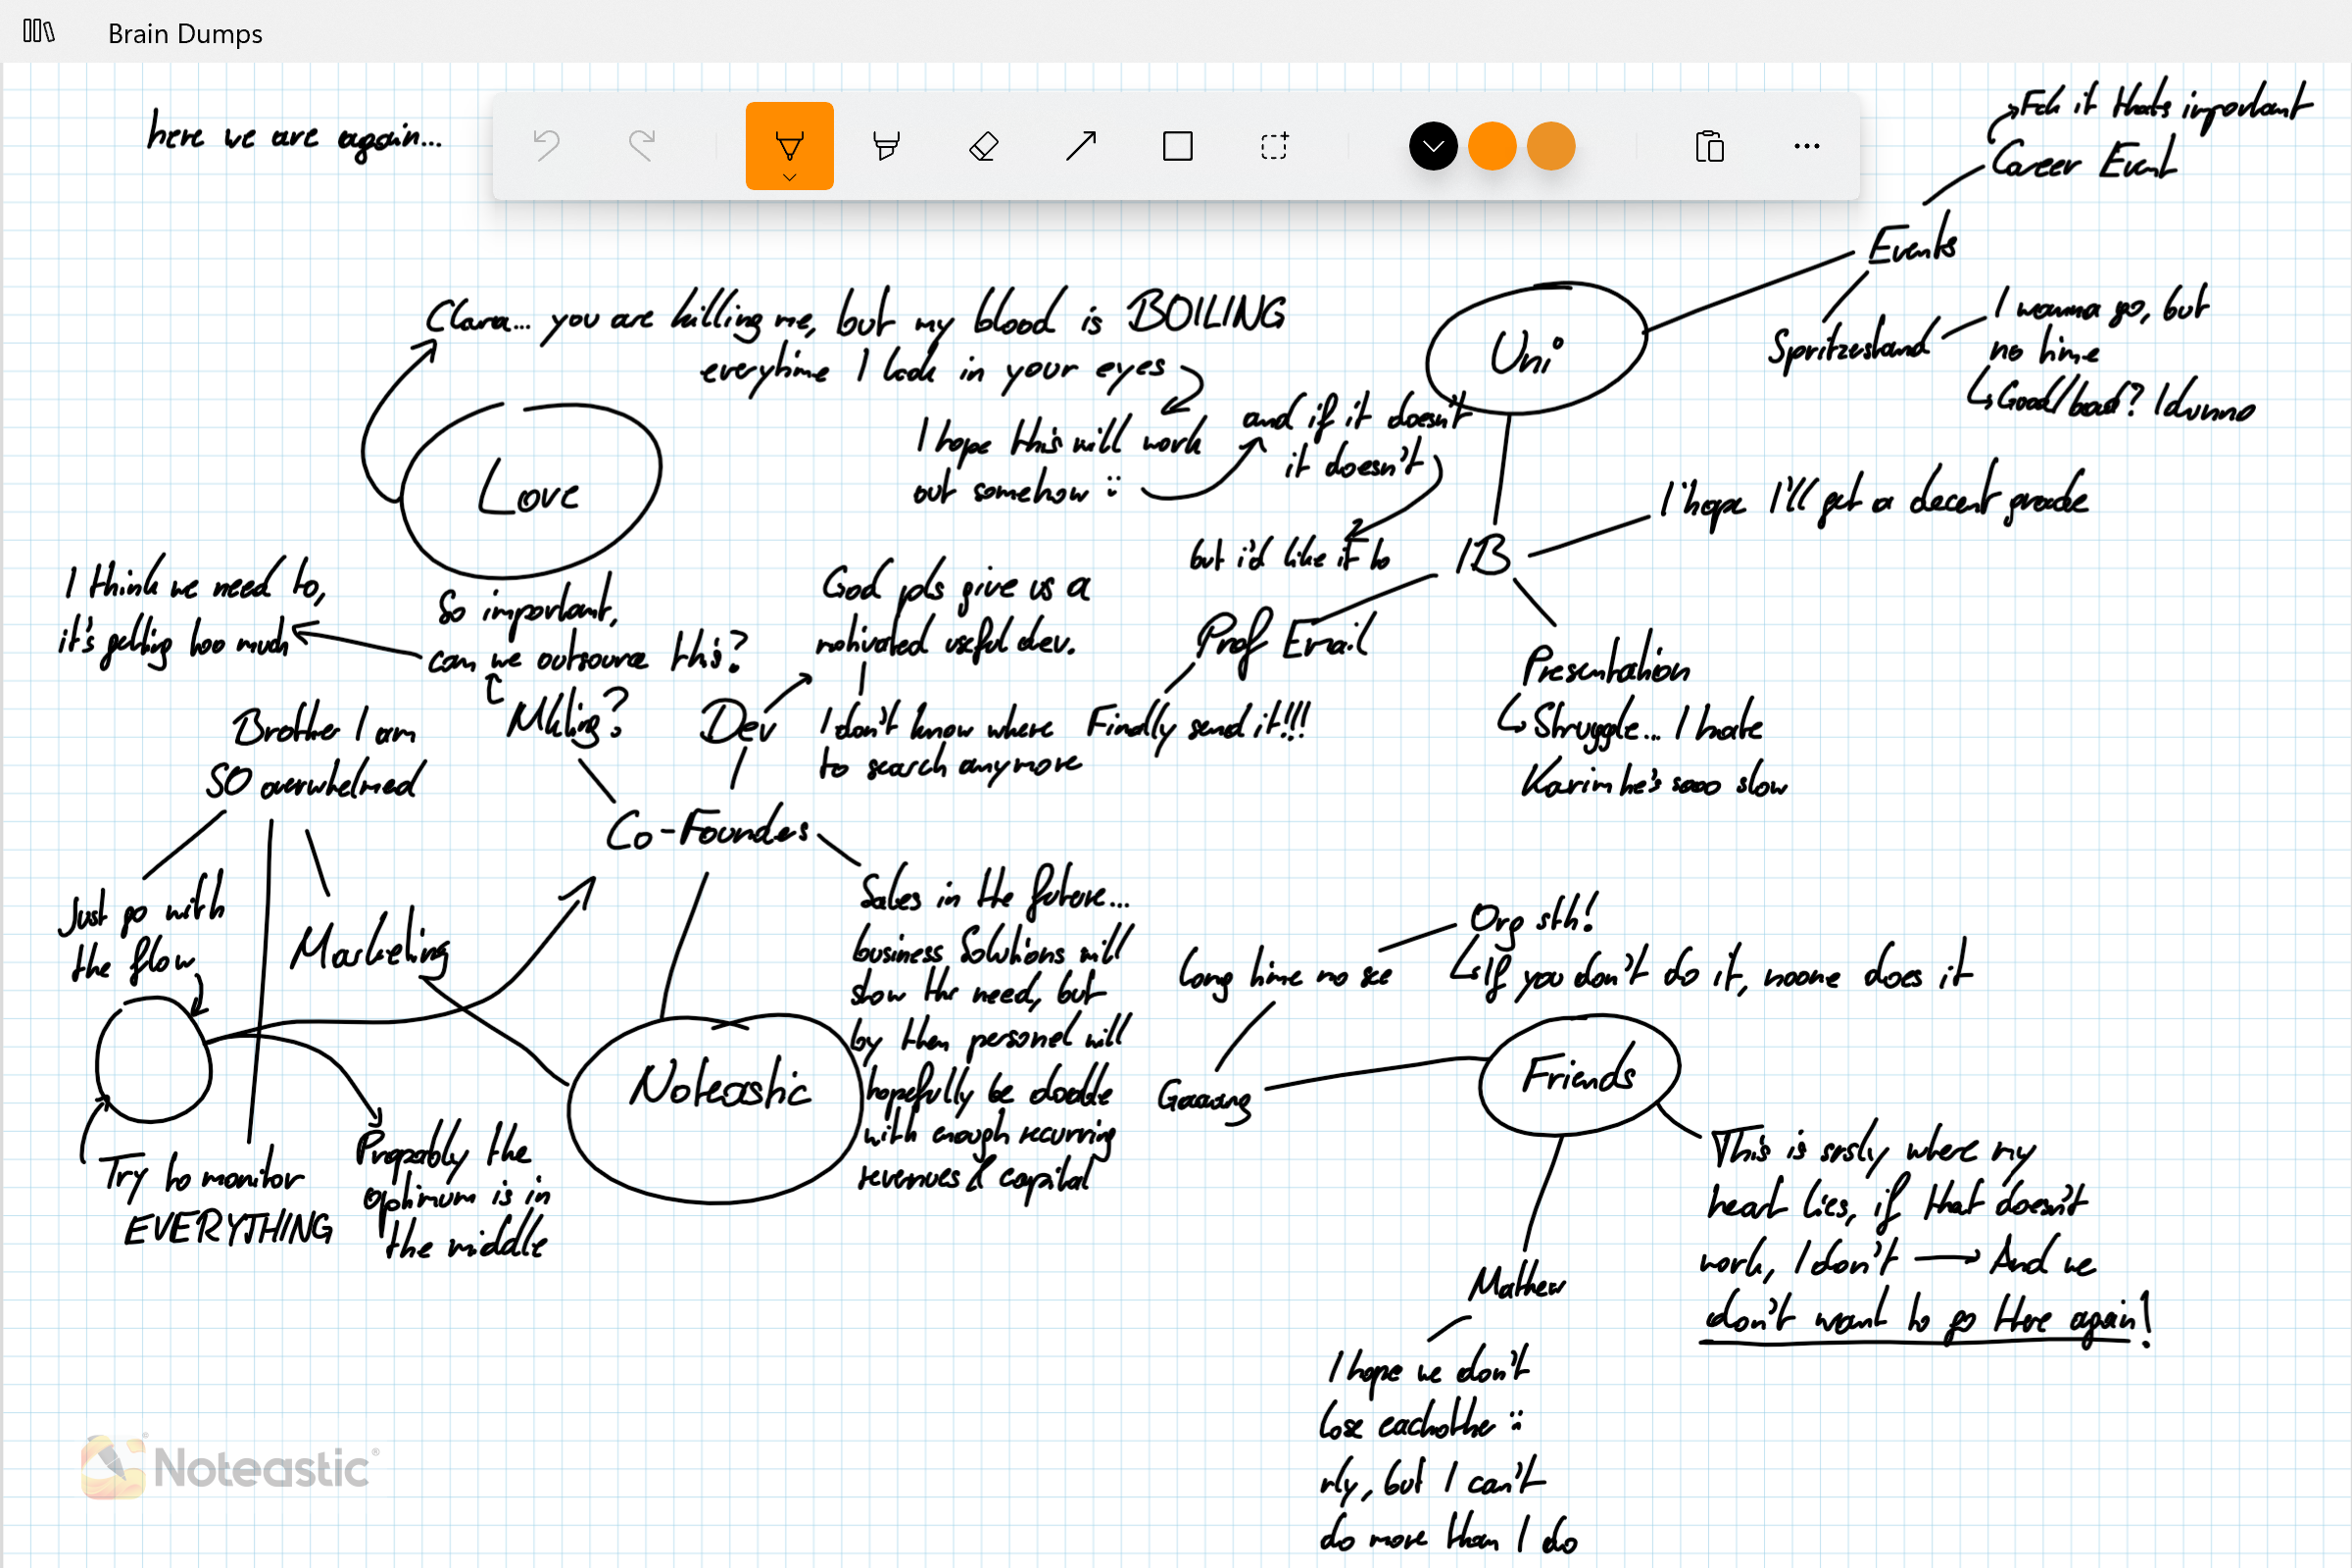 Brain Dumps
here we are again...
Fck it thats important
Career Event
Events
Spritzerstand
I wanna go, but
no time
Good/bad? Idunno
Uni
Clara... you are killing me, but my blood is BOILING
everytime I look in your eyes
I hope this will work
out somehow :
and if it doesn't
it doesn't
but i'd like it to
Love
IB
I hope I'll get a decent grade
Prof Email
Finally send it!!!
Presentation
Struggle... I hate
Karim he's sooo slow
I think we need to,
it's getting too much
So important,
can we outsource this?
Mkting?
God pls give us a
motivated useful dev.
Dev
I don't know where
to search anymore
Brother I am
SO overwhelmed
Co-Founders
Just go with
the flow
Marketing
Sales in the future...
business Solutions will
show the need, but
by then personel will
hopefully be doable
with enough recurring
revenues & capital
Noteastic
Try to monitor
EVERYTHING
Propably the
optimum is in
the middle
Org sth!
If you don't do it, noone does it
long time no see
Gaaang
Friends
This is srsly where my
heart lies, if that doesn't
work, I don't → And we
don't want to go there again!
Mathew
I hope we don't
lose eachother :
rly, but I can't
do more than I do
Noteastic